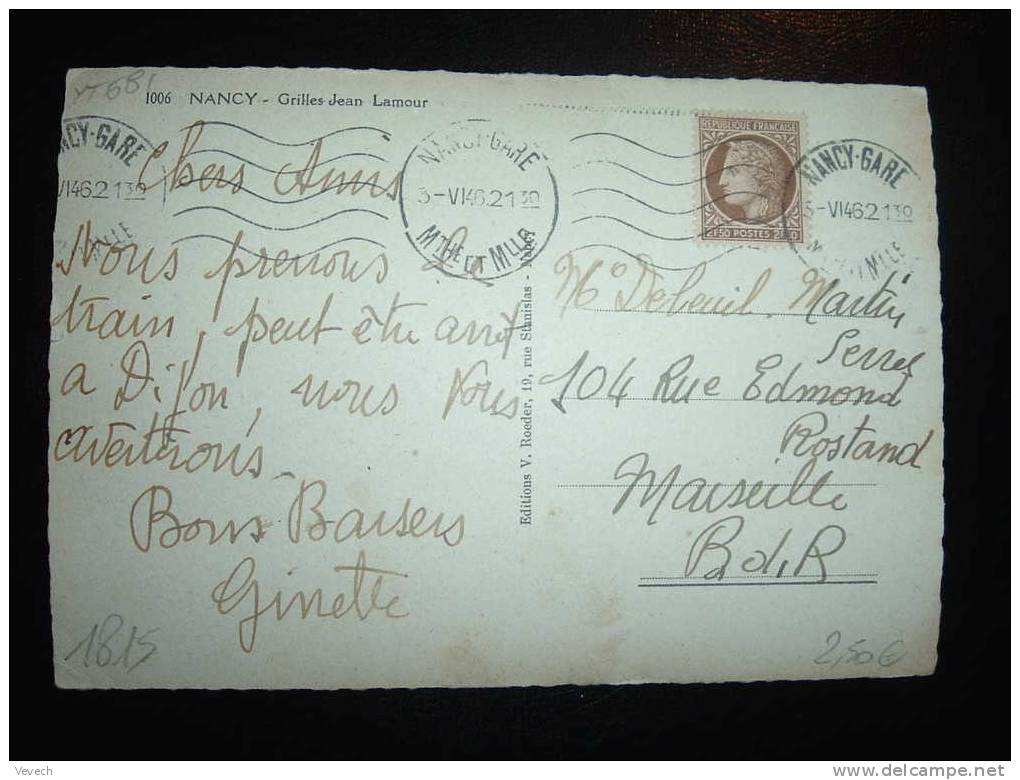 YT 681
1006 NANCY - Grilles Jean Lamour
NANCY-GARE
3-VI46.21 30
MTHE ET MLLE
NCY-GARE
VI46.21 30
MLLE
NANCY-GARE
3-VI46.21 30
MLLE
REPUBLIQUE FRANÇAISE
2F50 POSTES 2F50
Chers Amis
Nous prenons le
train, peut être arrêt
a Dijon, nous vous
avertirons.
Bons Baisers
Ginette
Editions V. Roeder, 19, rue Stanislas - Nancy
Debeuil. Martin
Serres
104 Rue Edmond
Rostand
Marseille
B.d.R
1815
2,50€
Vevech
delcampe.net